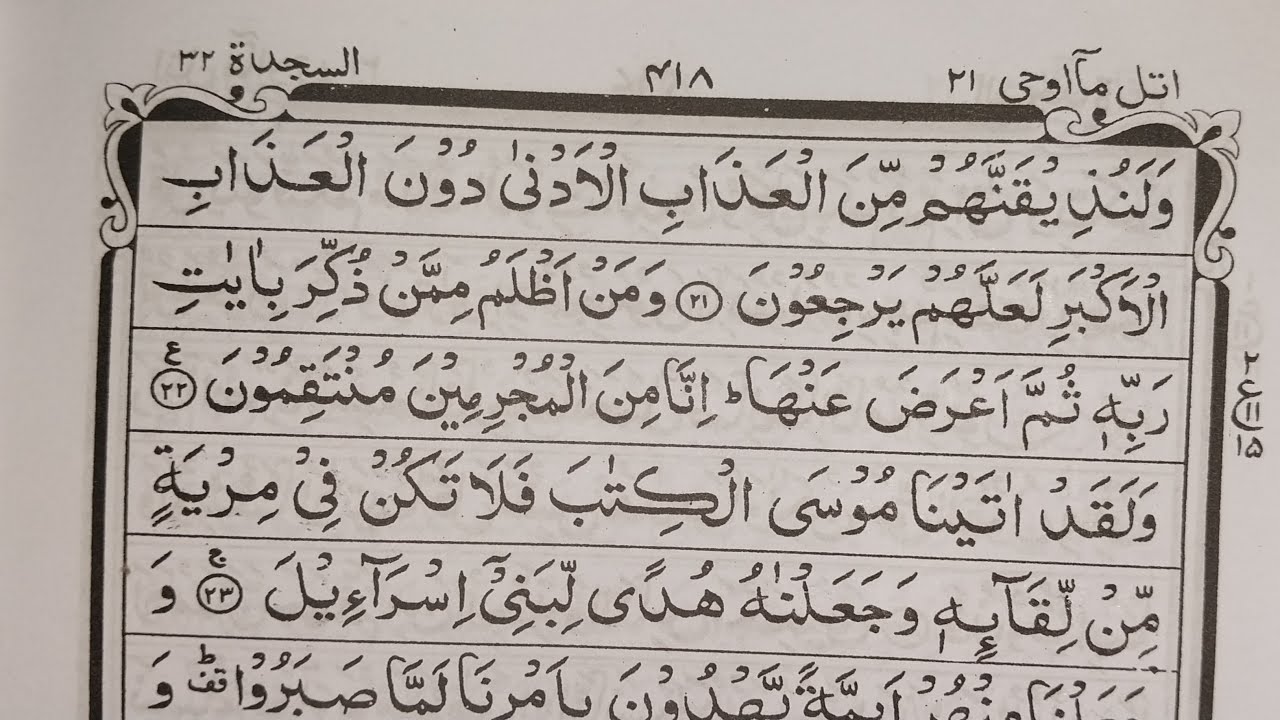 اتل مآاوحی ٢١ ٤١٨ السجدة ٣٢
وَلَنُذِيْقَنَّهُمْ مِّنَ الْعَذَابِ الْاَدْنٰى دُوْنَ الْعَذَابِ
الْاَكْبَرِ لَعَلَّهُمْ يَرْجِعُوْنَ ٢١ وَمَنْ اَظْلَمُ مِمَّنْ ذُكِّرَ بِاٰيٰتِ
رَبِّهٖ ثُمَّ اَعْرَضَ عَنْهَا ؕ اِنَّا مِنَ الْمُجْرِمِيْنَ مُنْتَقِمُوْنَ ٢٢ ع
وَلَقَدْ اٰتَيْنَا مُوْسَى الْكِتٰبَ فَلَا تَكُنْ فِيْ مِرْيَةٍ
مِّنْ لِّقَآىِٕهٖ وَجَعَلْنٰهُ هُدًى لِّبَنِيْۤ اِسْرَآءِيْلَ ٢٣ ج وَ
جَعَلْنَا مِنْهُمْ اَىِٕمَّةً يَّهْدُوْنَ بِاَمْرِنَا لَمَّا صَبَرُوْا ؕ قف وَ
٢ ع ١١ ١٥